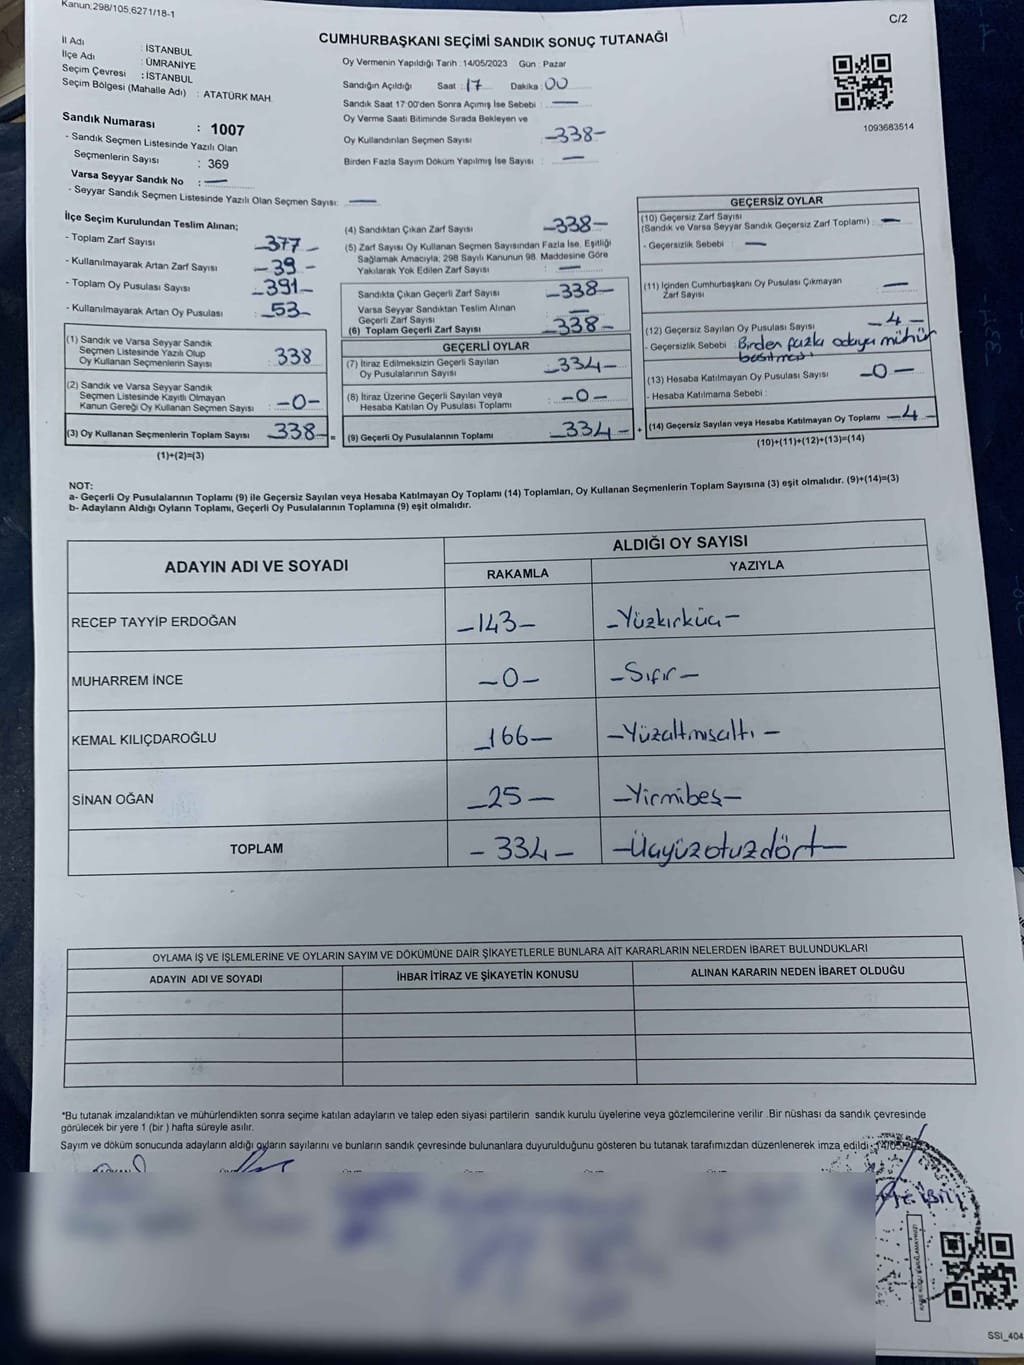 Kanun:298/105,6271/18-1
C/2
CUMHURBAŞKANI SEÇİMİ SANDIK SONUÇ TUTANAĞI
İl Adı : İSTANBUL
İlçe Adı : ÜMRANİYE
Seçim Çevresi : İSTANBUL
Seçim Bölgesi (Mahalle Adı) : ATATÜRK MAH.
Sandık Numarası : 1007
- Sandık Seçmen Listesinde Yazılı Olan
Seçmenlerin Sayısı : 369
Varsa Seyyar Sandık No : —
- Seyyar Sandık Seçmen Listesinde Yazılı Olan Seçmen Sayısı: —
Oy Vermenin Yapıldığı Tarih : 14/05/2023 Gün : Pazar
Sandığın Açıldığı Saat : 17 Dakika : 00
Sandık Saat 17:00'den Sonra Açımış İse Sebebi : —
Oy Verme Saati Bitiminde Sırada Bekleyen ve
Oy Kullandırılan Seçmen Sayısı : -338-
Birden Fazla Sayım Döküm Yapılmış İse Sayısı : —
1093683514
İlçe Seçim Kurulundan Teslim Alınan;
- Toplam Zarf Sayısı : -377-
- Kullanılmayarak Artan Zarf Sayısı : -39-
- Toplam Oy Pusulası Sayısı : -391-
- Kullanılmayarak Artan Oy Pusulası : -53-
(1) Sandık ve Varsa Seyyar Sandık
Seçmen Listesinde Yazılı Olup
Oy Kullanan Seçmenlerin Sayısı : 338
(2) Sandık ve Varsa Seyyar Sandık
Seçmen Listesinde Kayıtlı Olmayan
Kanun Gereği Oy Kullanan Seçmen Sayısı : -0-
(3) Oy Kullanan Seçmenlerin Toplam Sayısı 338- =
(1)+(2)=(3)
(4) Sandıktan Çıkan Zarf Sayısı : -338-
(5) Zarf Sayısı Oy Kullanan Seçmen Sayısından Fazla İse, Eşitliği
Sağlamak Amacıyla; 298 Sayılı Kanunun 98. Maddesine Göre
Yakılarak Yok Edilen Zarf Sayısı : —
Sandıkta Çıkan Geçerli Zarf Sayısı : -338-
Varsa Seyyar Sandıktan Teslim Alınan
Geçerli Zarf Sayısı : —
(6) Toplam Geçerli Zarf Sayısı : -338-
GEÇERLİ OYLAR
(7) İtiraz Edilmeksizin Geçerli Sayılan
Oy Pusulalarının Sayısı : -334-
(8) İtiraz Üzerine Geçerli Sayılan veya
Hesaba Katılan Oy Pusulası Toplamı : -0-
(9) Geçerli Oy Pusulalarının Toplamı : -334- +
GEÇERSİZ OYLAR
(10) Geçersiz Zarf Sayısı
(Sandık ve Varsa Seyyar Sandık Geçersiz Zarf Toplamı) : —
- Geçersizlik Sebebi : —
(11) İçinden Cumhurbaşkanı Oy Pusulası Çıkmayan
Zarf Sayısı : —
(12) Geçersiz Sayılan Oy Pusulası Sayısı : -4-
- Geçersizlik Sebebi : Birden fazla adaya mühür
basılması
(13) Hesaba Katılmayan Oy Pusulası Sayısı : -0-
- Hesaba Katılmama Sebebi :
(14) Geçersiz Sayılan veya Hesaba Katılmayan Oy Toplamı : -4-
(10)+(11)+(12)+(13)=(14)
NOT:
a- Geçerli Oy Pusulalarının Toplamı (9) ile Geçersiz Sayılan veya Hesaba Katılmayan Oy Toplamı (14) Toplamları, Oy Kullanan Seçmenlerin Toplam Sayısına (3) eşit olmalıdır. (9)+(14)=(3)
b- Adayların Aldığı Oyların Toplamı, Geçerli Oy Pusulalarının Toplamına (9) eşit olmalıdır.
ADAYIN ADI VE SOYADI ALDIĞI OY SAYISI
RAKAMLA YAZIYLA
RECEP TAYYİP ERDOĞAN -143- -Yüzkırküç-
MUHARREM İNCE -0- -Sıfır-
KEMAL KILIÇDAROĞLU -166- -Yüzaltmışaltı-
SİNAN OĞAN -25- -Yirmibeş-
TOPLAM -334- -Üçyüzotuzdört-
OYLAMA İŞ VE İŞLEMLERİNE VE OYLARIN SAYIM VE DÖKÜMÜNE DAİR ŞİKAYETLERLE BUNLARA AİT KARARLARIN NELERDEN İBARET BULUNDUKLARI
ADAYIN ADI VE SOYADI İHBAR İTİRAZ VE ŞİKAYETİN KONUSU ALINAN KARARIN NEDEN İBARET OLDUĞU
*Bu tutanak imzalandıktan ve mühürlendikten sonra seçime katılan adayların ve talep eden siyasi partilerin sandık kurulu üyelerine veya gözlemcilerine verilir .Bir nüshası da sandık çevresinde
görülecek bir yere 1 (bir ) hafta süreyle asılır.
Sayım ve döküm sonucunda adayların aldığı oyların sayılarını ve bunların sandık çevresinde bulunanlara duyurulduğunu gösteren bu tutanak tarafımızdan düzenlenerek imza edildi.
SSI_404